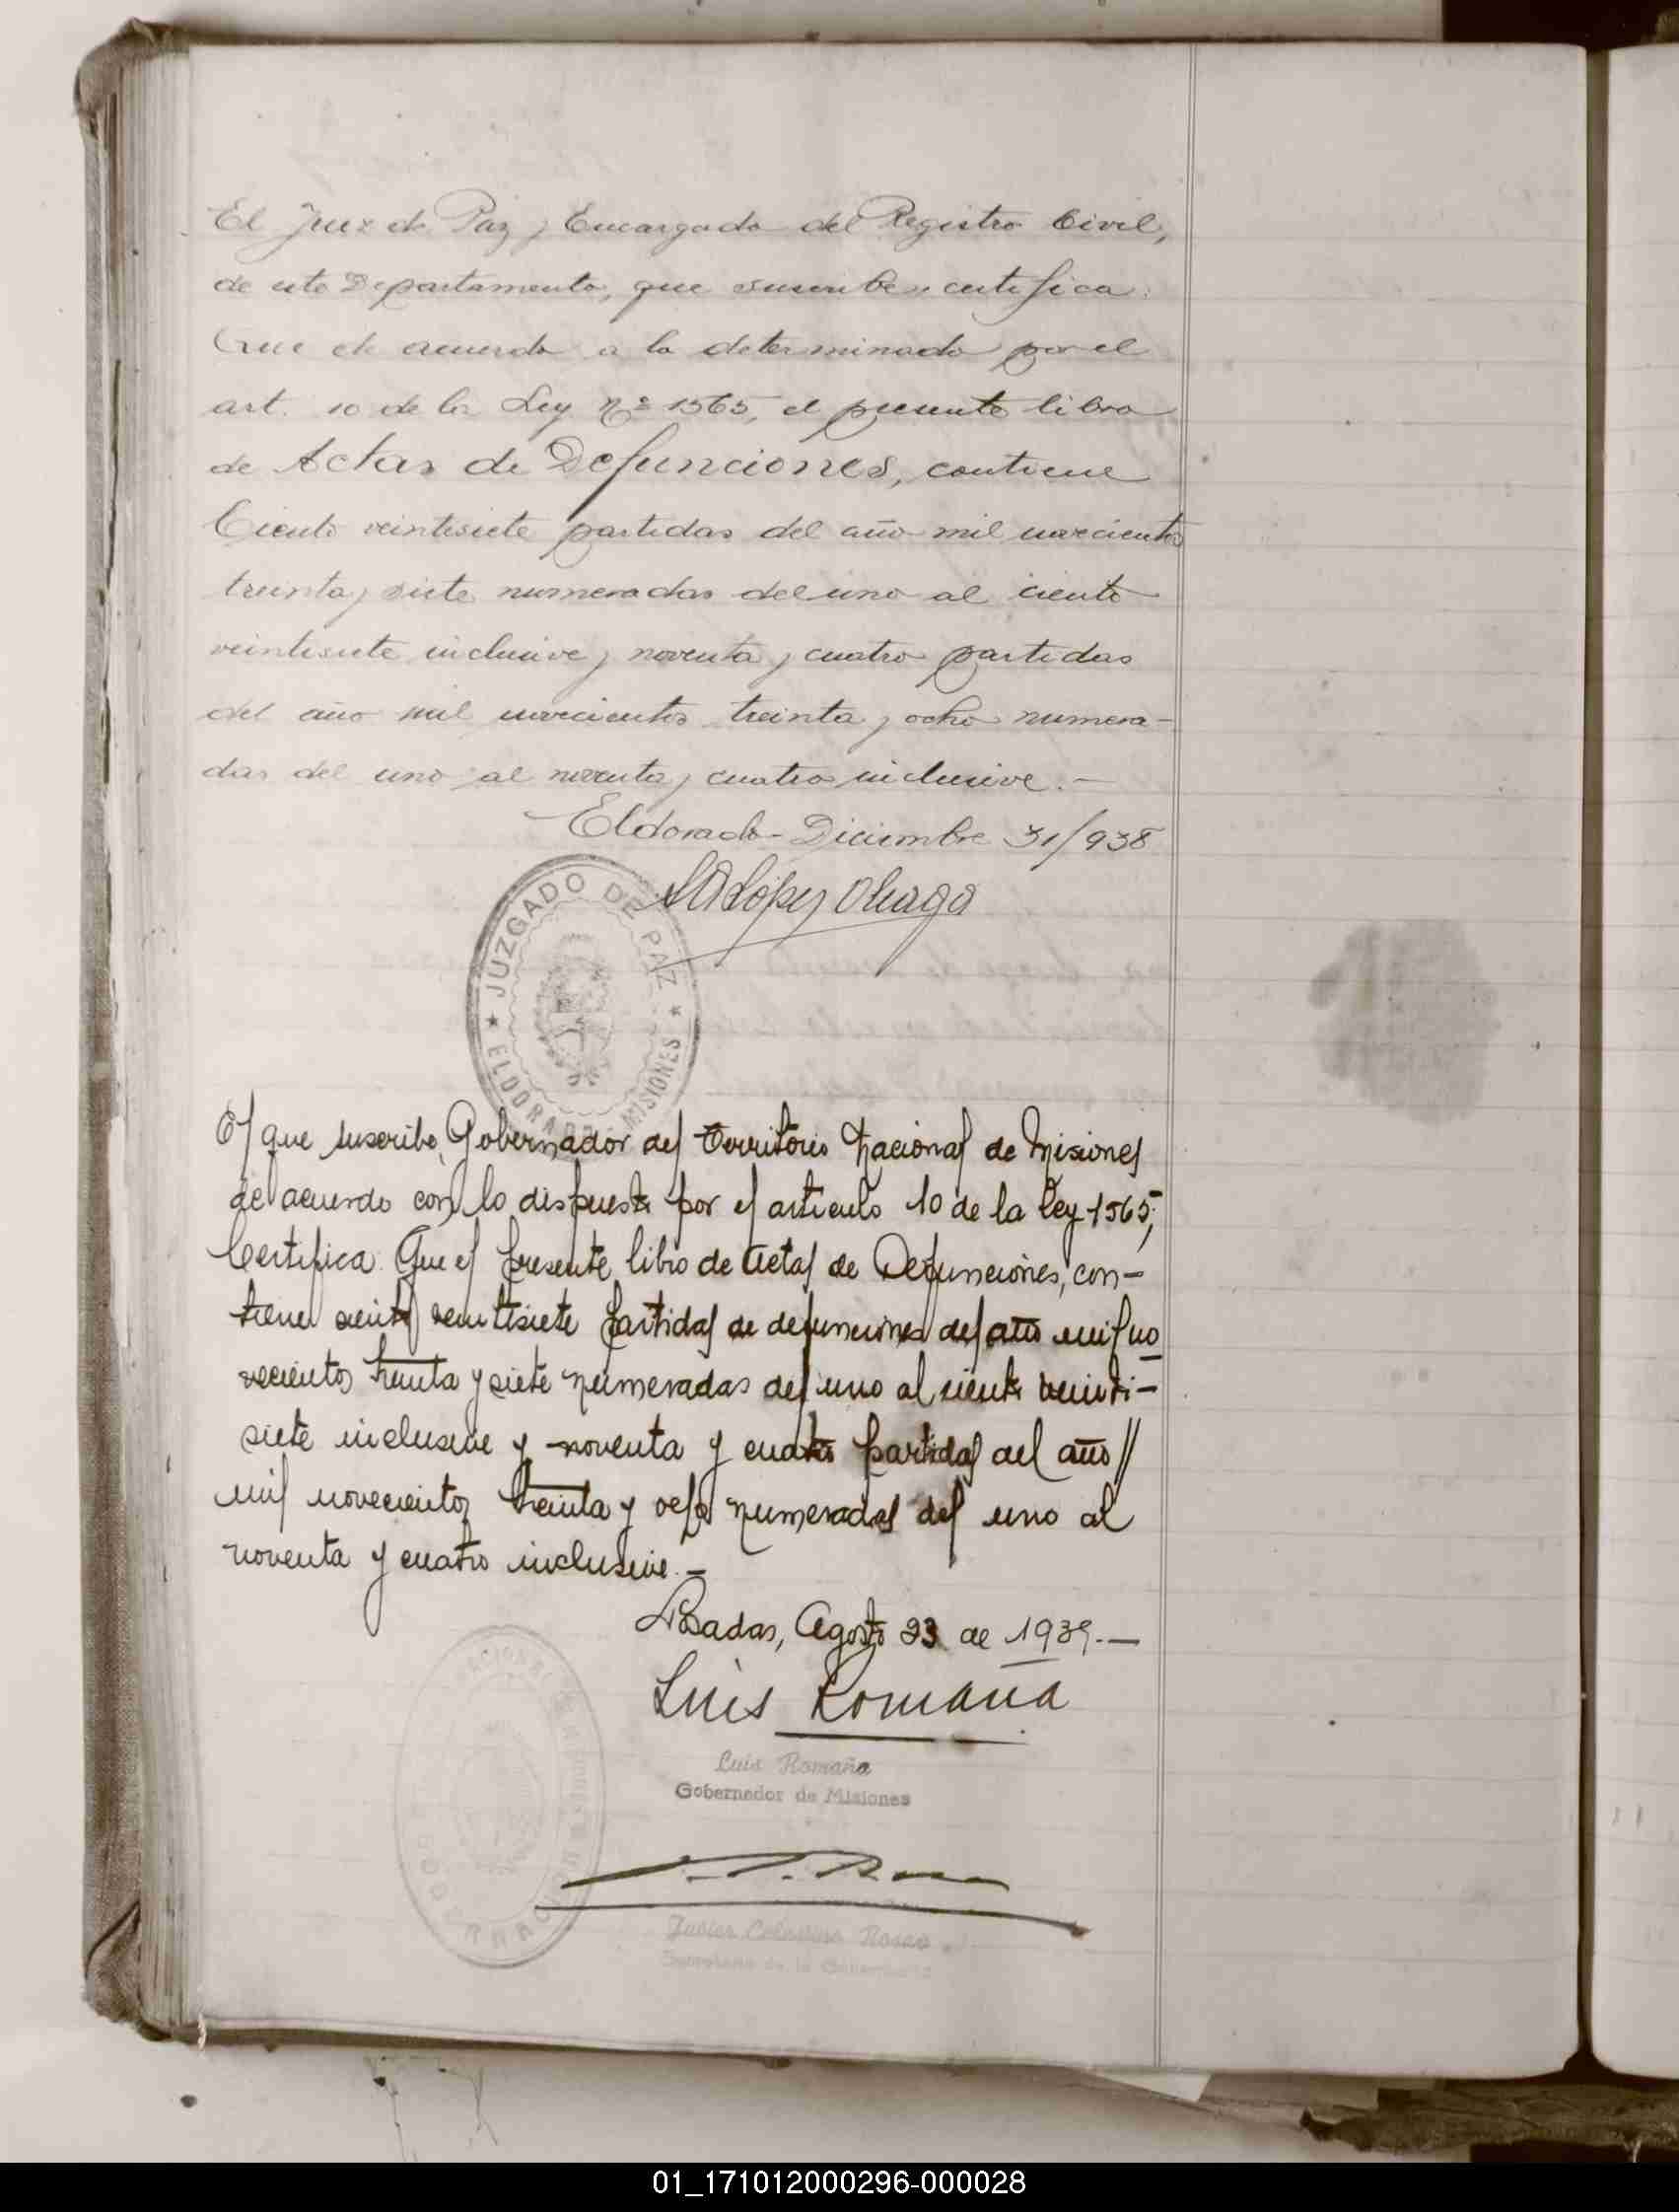 El Juez de Paz y Encargado del Registro Civil,
de este Departamento, que suscribe, certifica:
Que de acuerdo a lo determinado por el
art. 10 de la Ley Nº 1565, el presente libro
de Actas de Defunciones, contiene
Ciento veintisiete partidas del año mil novecientos
treinta y siete numeradas del uno al ciento
veintisiete inclusive y noventa y cuatro partidas
del año mil novecientos treinta y ocho numera-
das del uno al noventa y cuatro inclusive.-
Eldorado - Diciembre 31/938
López
JUZGADO DE PAZ
ELDORADO MISIONES
El que suscribe, Gobernador del Territorio Nacional de Misiones
de acuerdo con lo dispuesto por el articulo 10 de la Ley 1565;
Certifica: Que el presente libro de Actas de Defunciones, con-
tiene ciento veintisiete partidas de defunciones del año mil no
vecientos treinta y siete numeradas del uno al ciento veinti-
siete inclusive y noventa y cuatro partidas del año //
mil novecientos treinta y ocho numeradas del uno al
noventa y cuatro inclusive.-
Posadas, Agosto 23 de 1939.-
Luis Romaña
Luis Romaña
Gobernador de Misiones
Javier Celestino
Secretario de la
01_171012000296-000028